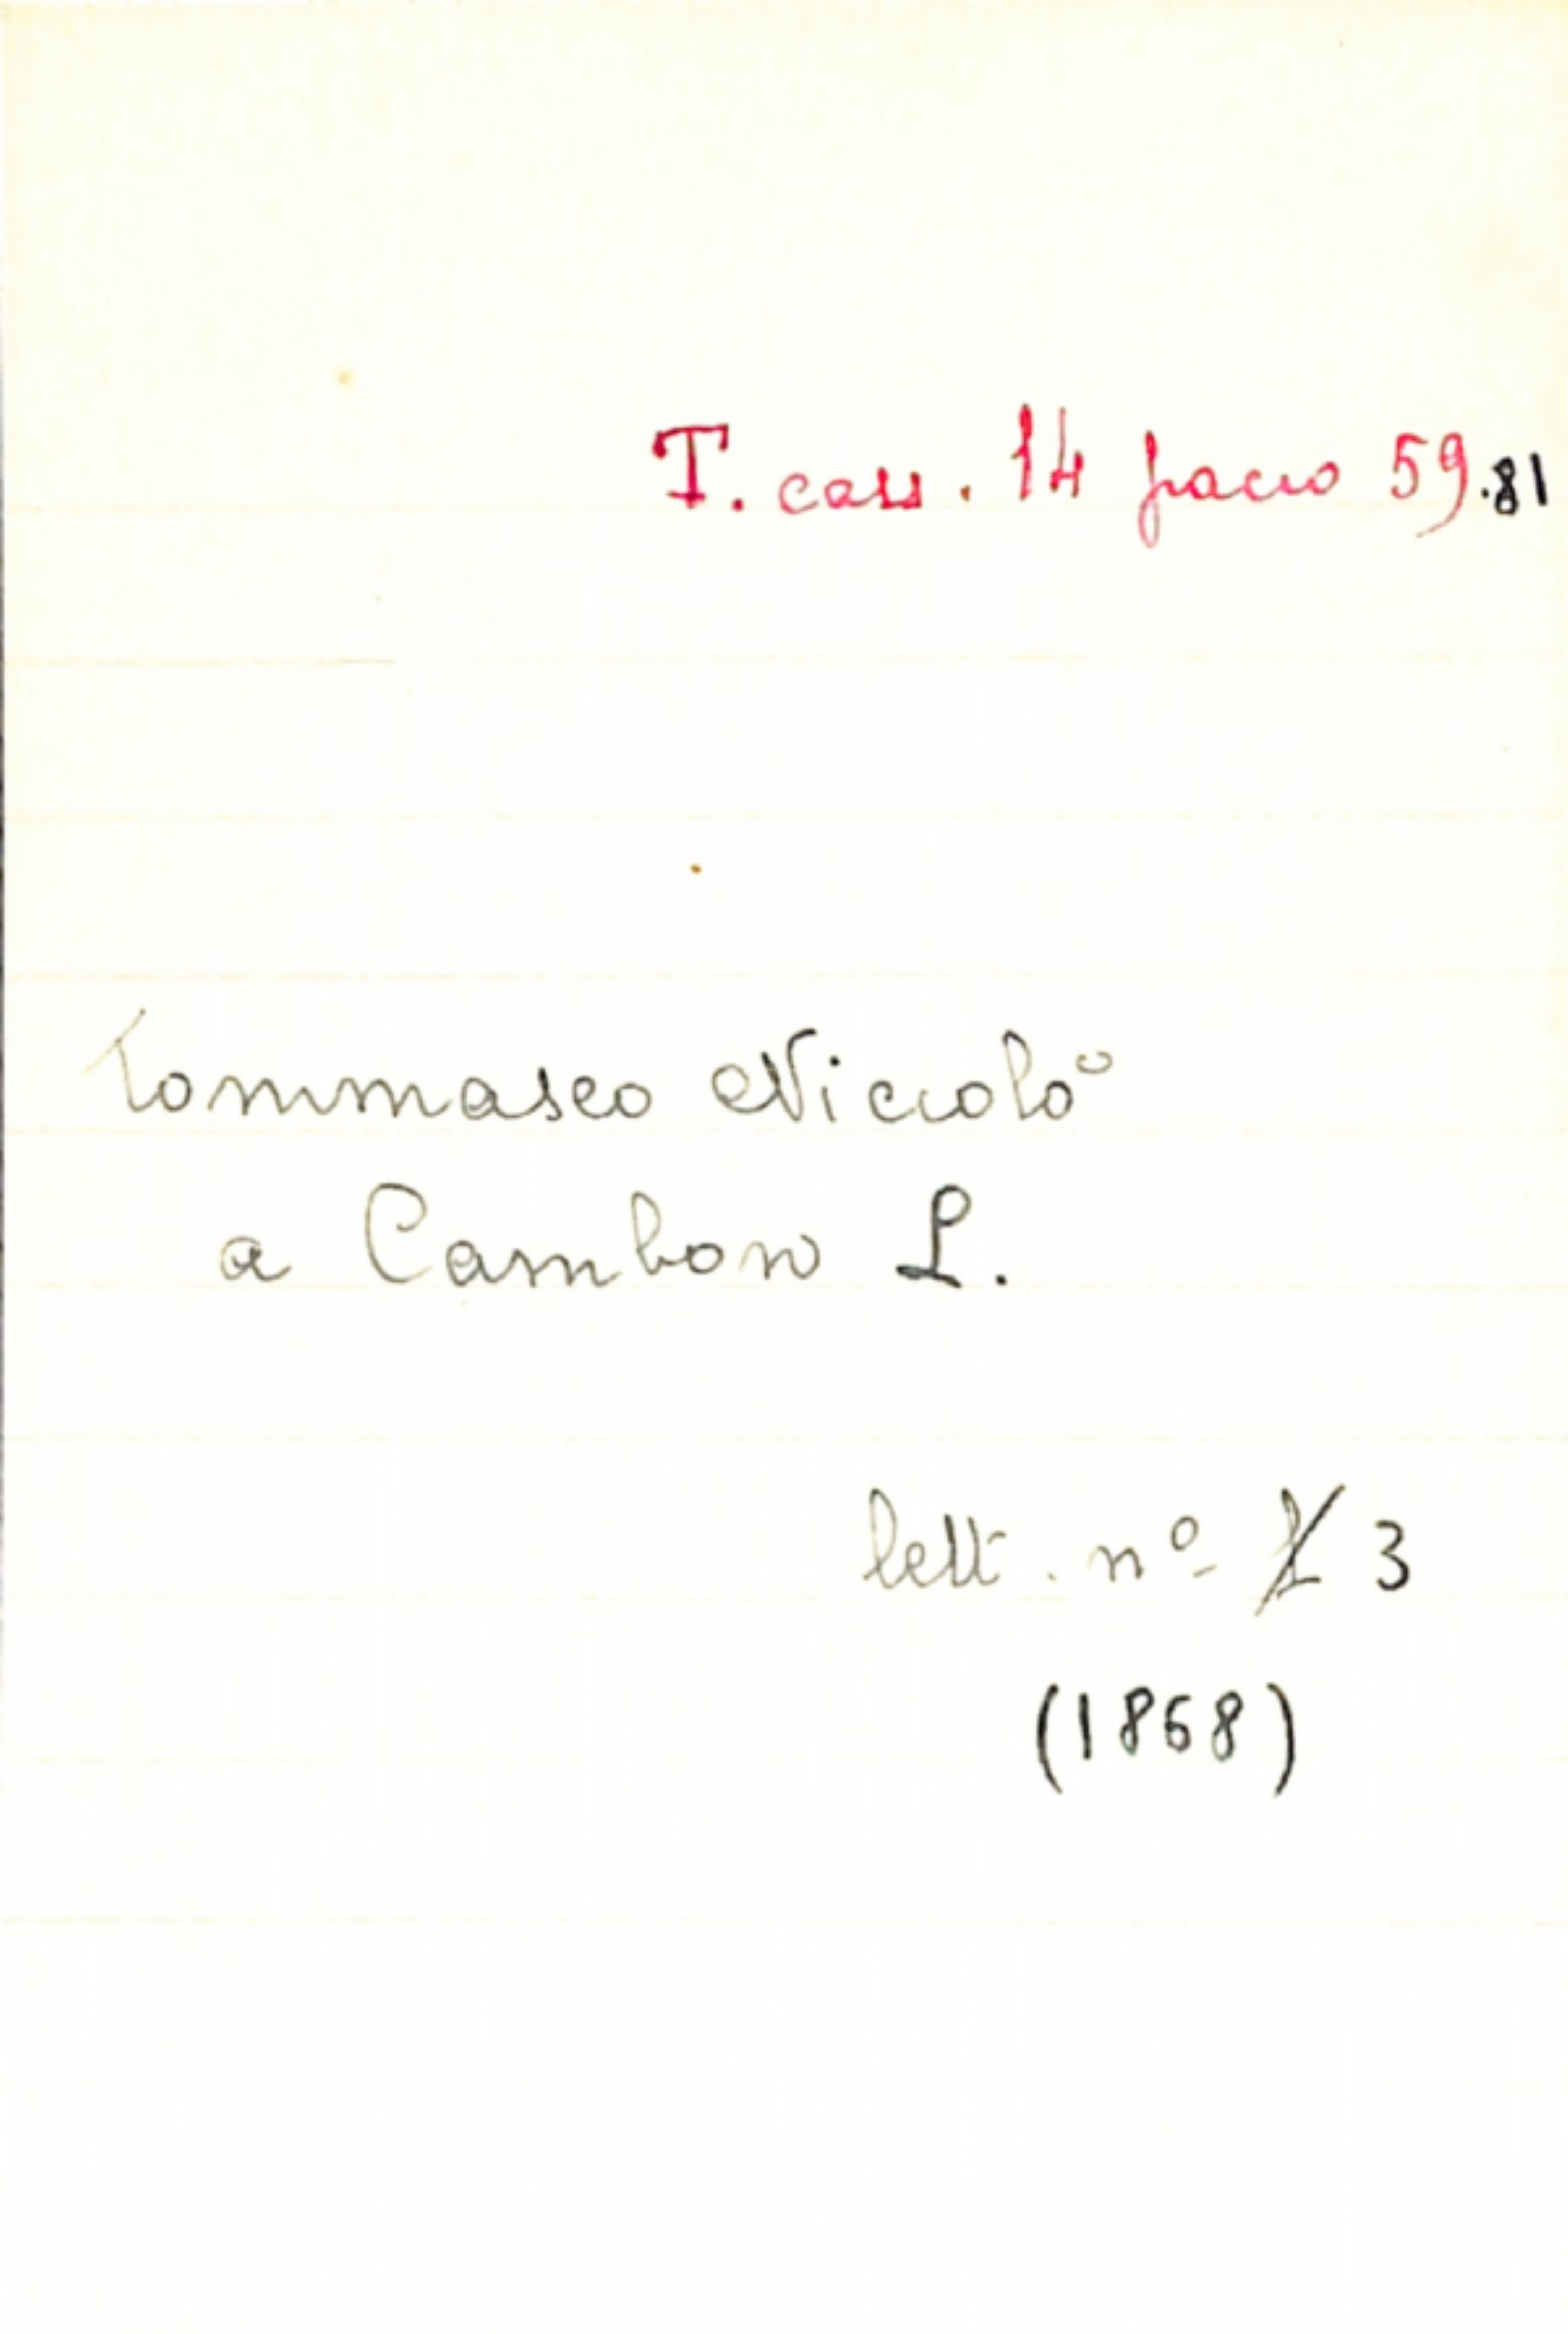 T. cass. 14 pacco 59.81
Tommaseo Niccolò
a Cambon L.
lett. nº 3
(1868)